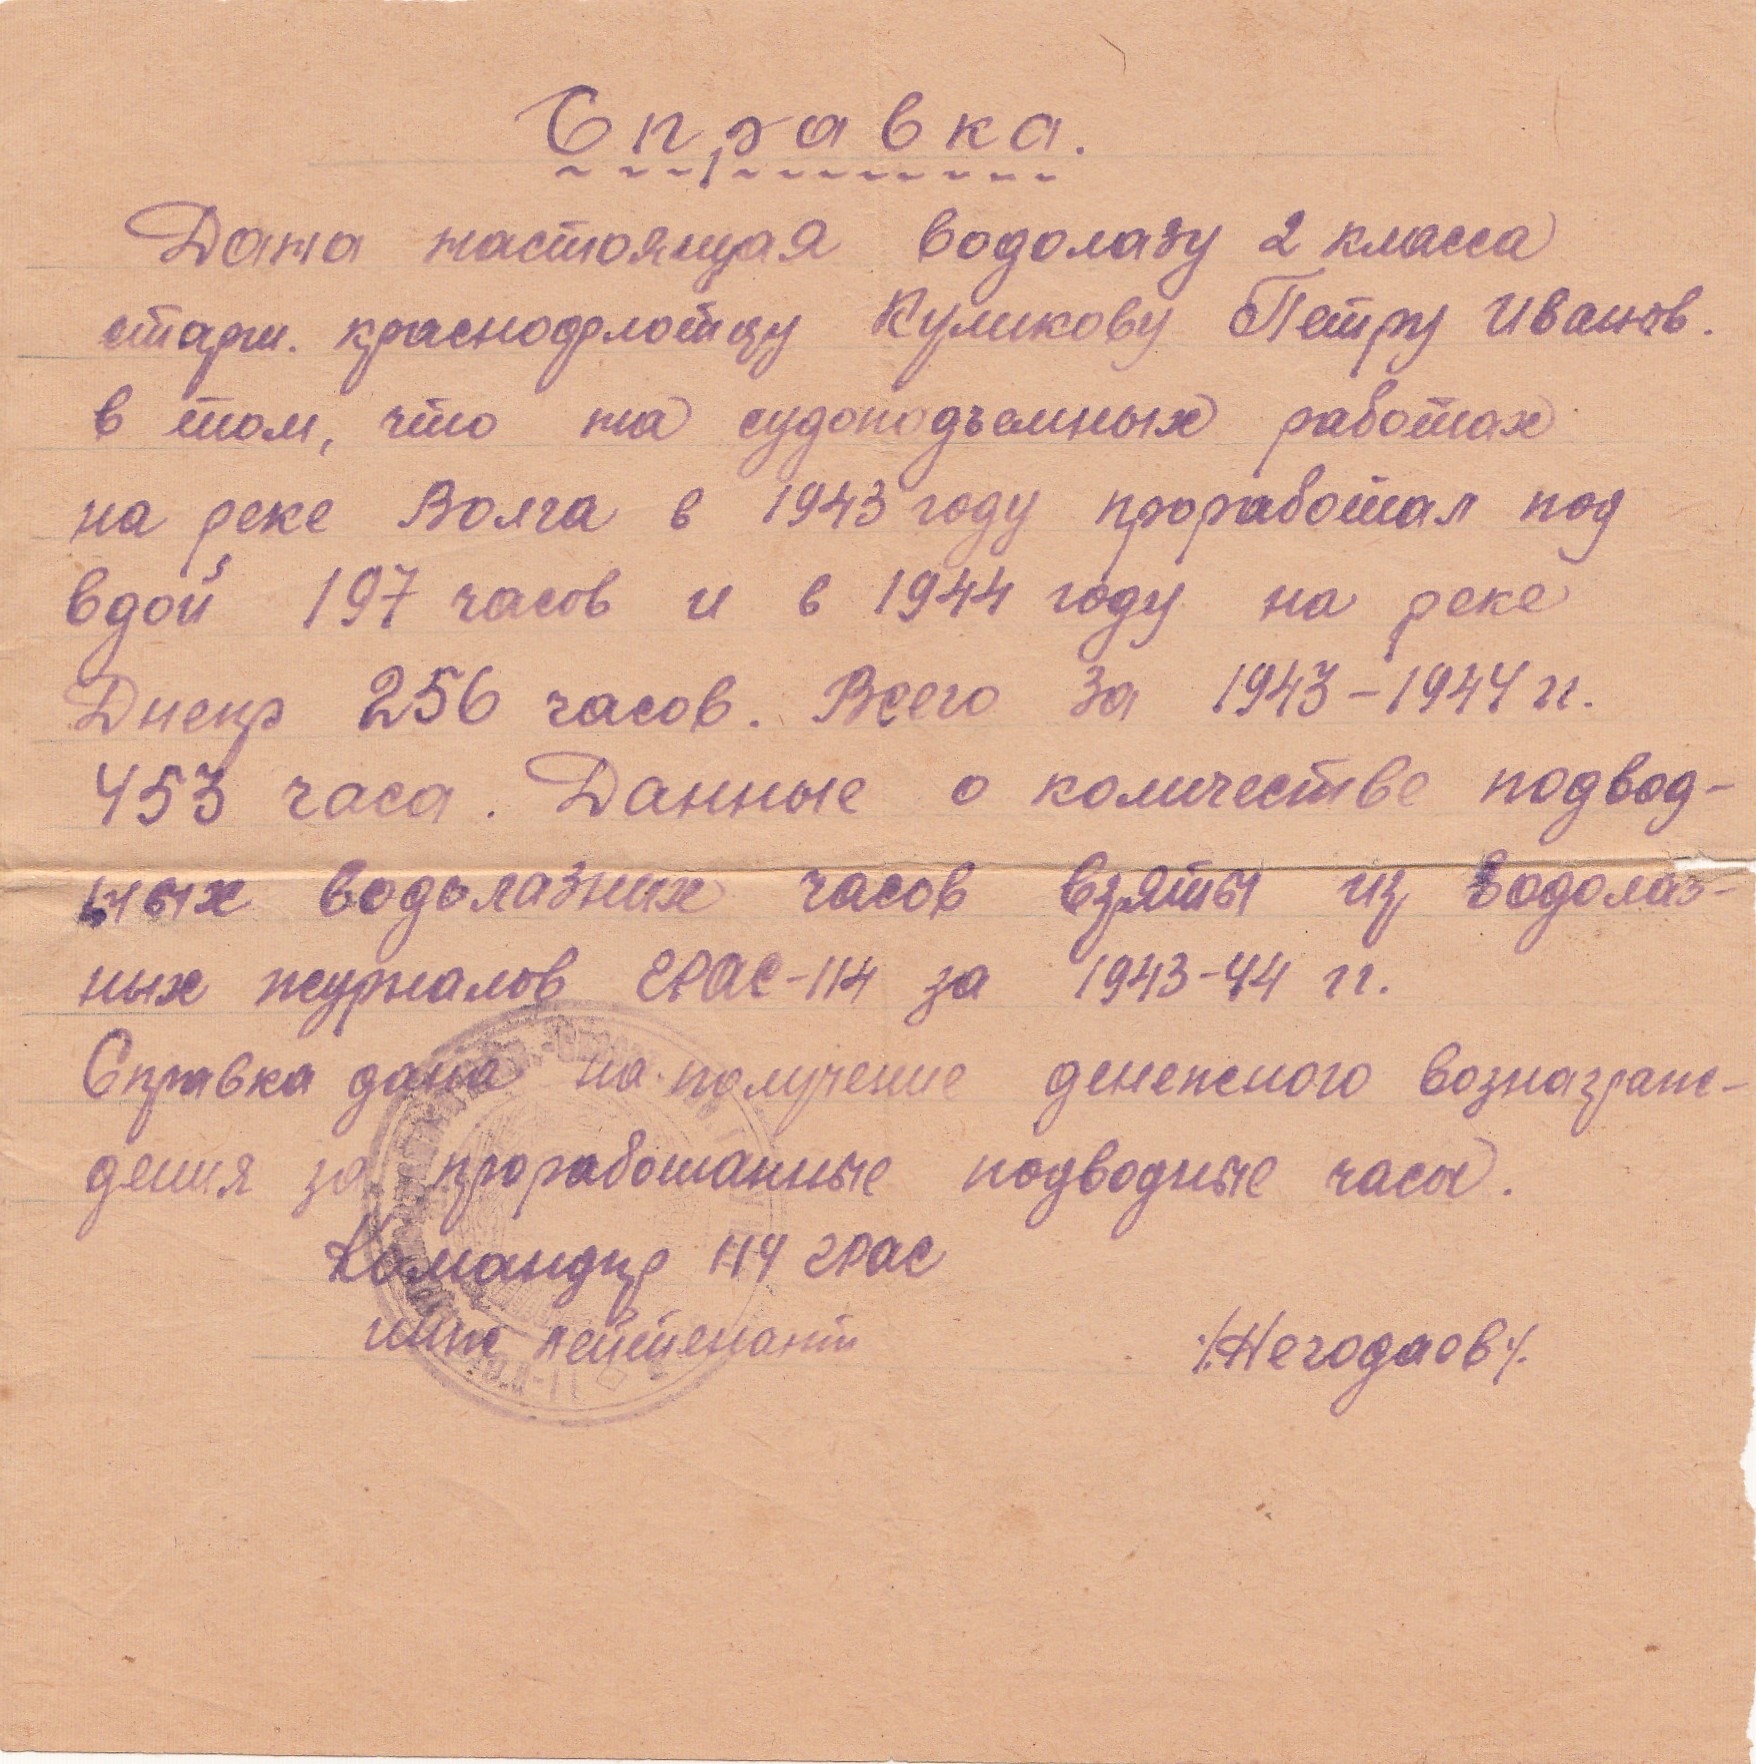 Справка.
Дана настоящая водолазу 2 класса
старш. краснофлотцу Куликову Петру Иванов.
в том, что на судоподъемных работах
на реке Волга в 1943 году проработал под
вдой 197 часов и в 1944 году на реке
Днепр 256 часов. Всего за 1943-1944 гг.
453 часа. Данные о количестве подвод-
ных водолазных часов взяты из водолаз-
ных журналов СРАС-114 за 1943-44 гг.
Справка дана на получение денежного вознаграж-
дения за проработанные подводные часы.
Командир 114 СРАС
инж лейтенант /Негодаев/.